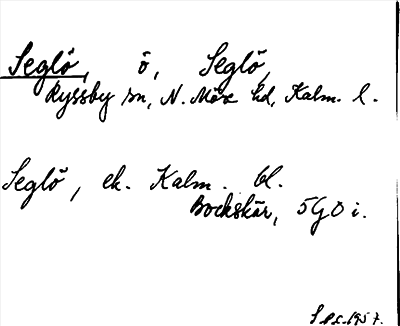 Seglö, ö, Seglö,
Ryssby sn, N. Möre hd, Kalm. l.
Seglö, ek. Kalm. bl.
Bockskär, 5G0 i.
1957.